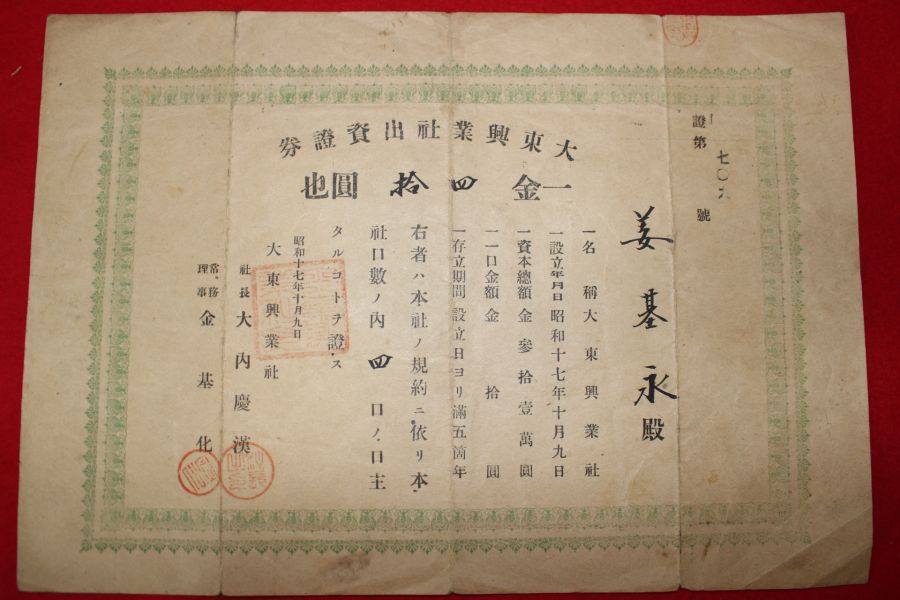 證第七〇六號
大東興業社出資證券
一金四拾圓也
姜基永殿
一名稱大東興業社
一設立年月日昭和十七年十月九日
一資本總額金參拾壹萬圓
一一口金額金拾圓
一存立期間設立日ヨリ滿五箇年
右者ハ本社ノ規約ニ依リ本
社口數ノ內四口ノ口主
タルコトヲ證ス
昭和十七年十月九日
大東興業社
社長大內慶漢
常務理事金基化